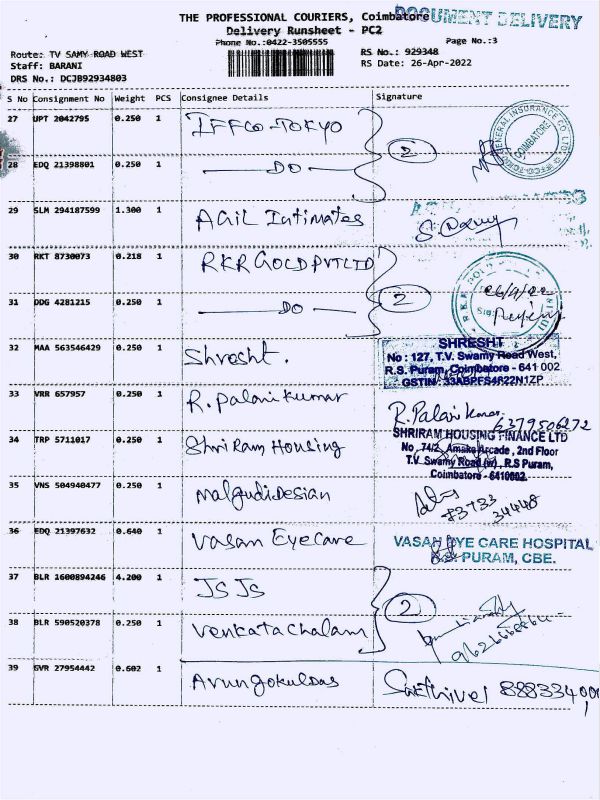 THE PROFESSIONAL COURIERS, Coimbatore
DOCUMENT DELIVERY
Delivery Runsheet - PC2
Phone No.:0422-3505555
Page No.:3
Route: TV SAMY ROAD WEST
RS No.: 929348
Staff: BARANI
RS Date: 26-Apr-2022
DRS No.: DCJB92934803
S No Consignment No Weight PCS Consignee Details Signature
27 UPT 2042795 0.250 1 IFFCO-TOKYO
2
GENERAL INSURANCE CO. LTD.
COIMBATORE
28 EDQ 21398801 0.250 1 — DO —
29 SLM 294187599 1.300 1 AGIL Intimates
30 RKT 8730073 0.218 1 RKR GOLD PVT LTD
2
31 DDG 4281215 0.250 1 — DO —
32 MAA 563546429 0.250 1 Shresht.
SHRESHT
No : 127, T.V. Swamy Road West,
R.S. Puram, Coimbatore - 641 002
GSTIN: 33ABPFS4822N1ZP
33 VRR 657957 0.250 1 R. Palani kumar
R. Palani kumar
6379506272
34 TRP 5711017 0.250 1 Shri Ram Housing
SHRIRAM HOUSING FINANCE LTD
No. 74/2, Amaka Arcade, 2nd Floor
T.V. Swamy Road (w), R.S Puram,
Coimbatore - 6410002.
35 VNS 504940477 0.250 1 Malgudi Desian
36 EDQ 21397632 0.640 1 Vasan Eye Care
VASAN EYE CARE HOSPITAL
R.S. PURAM, CBE.
37 BLR 1600894246 4.200 1 JS JS
2
38 BLR 590520378 0.250 1 Venkatachalam
39 GVR 27954442 0.602 1 Arun gokuldas
Sakthivel